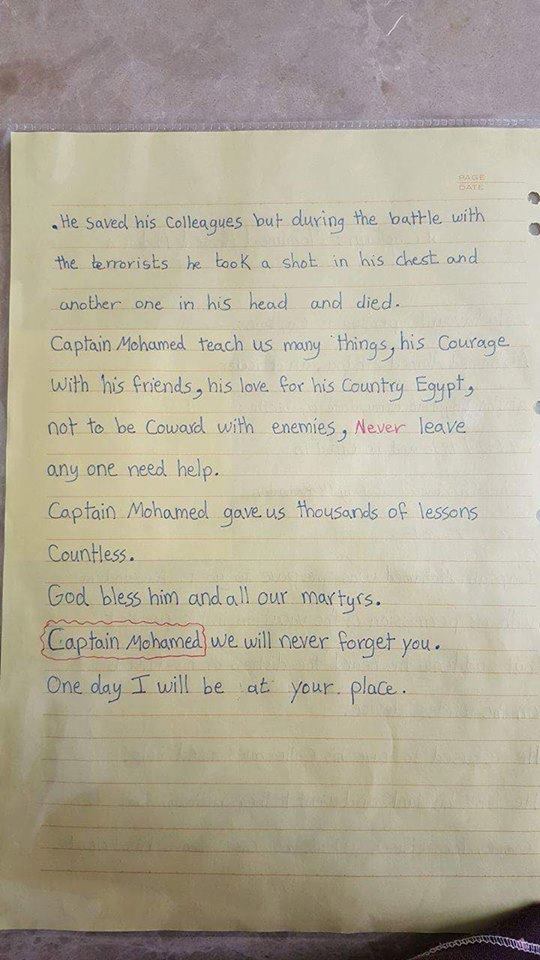 PAGE
DATE
. He saved his Colleagues but during the battle with
the terrorists he took a shot in his chest and
another one in his head and died.
Captain Mohamed teach us many things, his Courage
with his friends, his love for his Country Egypt,
not to be Coward with enemies, Never leave
any one need help.
Captain Mohamed gave us thousands of lessons
Countless.
God bless him and all our martyrs.
Captain Mohamed we will never forget you.
One day I will be at your place.